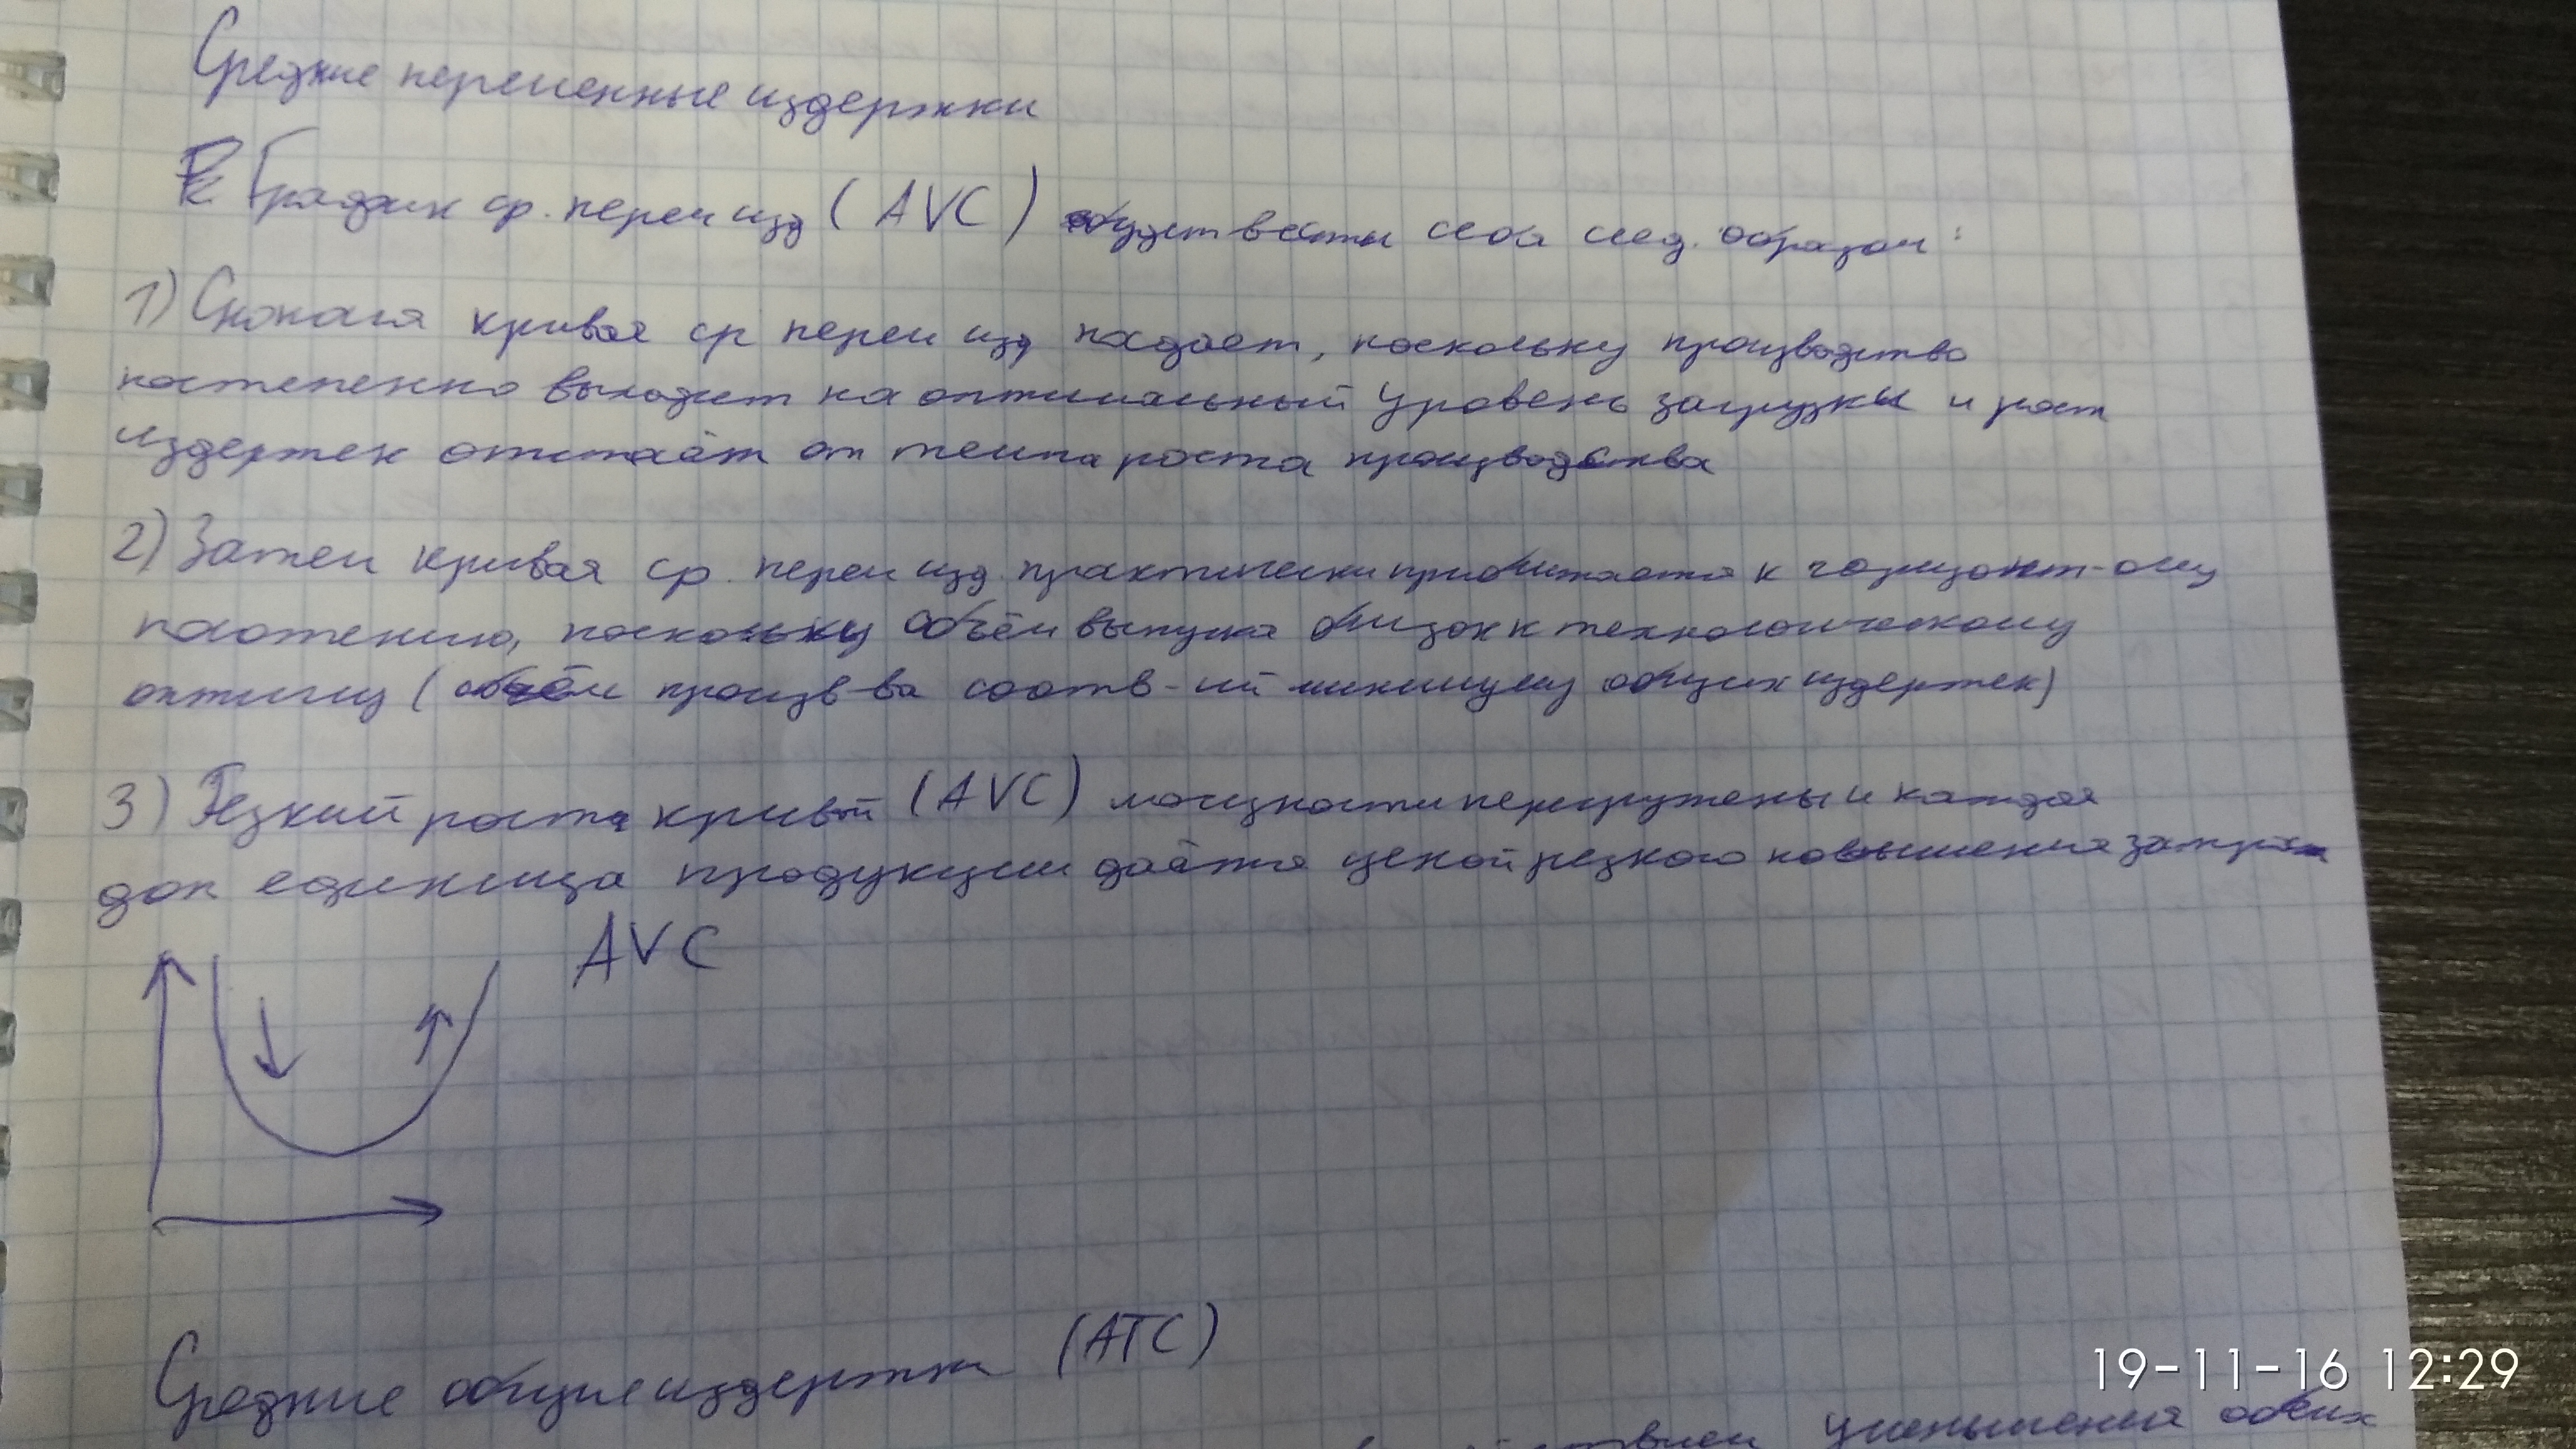 Средние переменные издержки
График ср. перем изд (AVC) будет вести себя след. образом:
1) Сначала кривая ср перем изд падает, поскольку производство
постепенно выходит на оптимальный уровень загрузки и рост
издержек отстаёт от темпа роста производства
2) Затем кривая ср. перем изд. практически приближается к горизонт-ому
положению, поскольку объём выпуска близок к технологическому
оптимуму (объём произв-ва соотв-ий минимуму общих издержек)
3) Резкий рост кривой (AVC) мощности перегружены и каждая
доп единица продукции даётся ценой резкого повышения затрат
AVC
Средние общие издержки (ATC)
уменьшения обеих
19-11-16 12:29